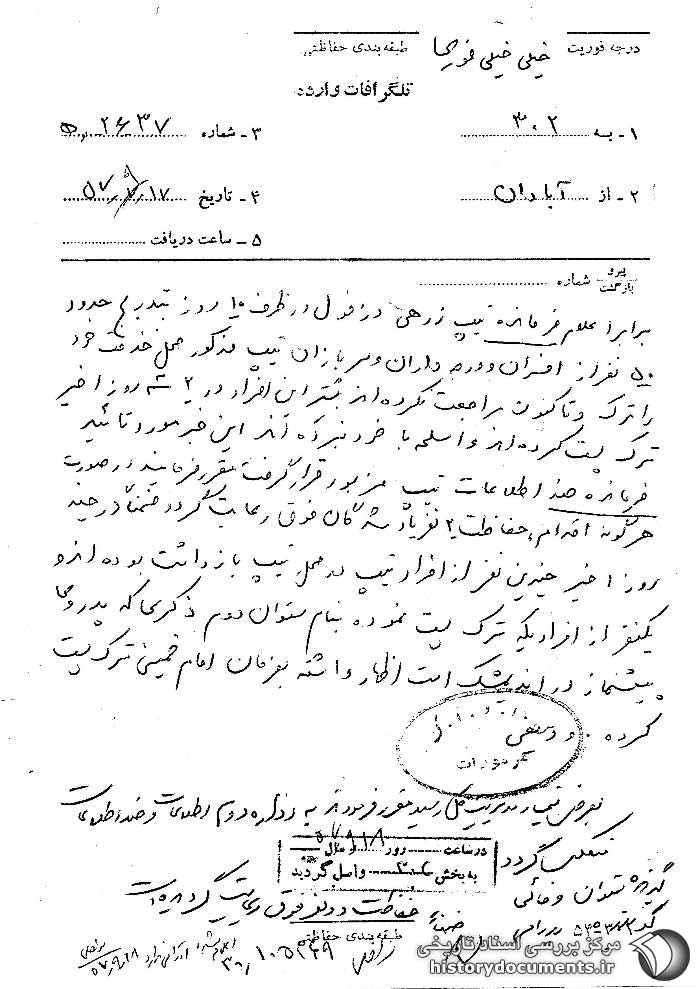 درجه فوریت خیلی خیلی فوری طبقه‌بندی حفاظتی
تلگرافات وارده
۱- به ۳۰۲ ۳- شماره ۲۶۳۷
۲- از آبادان ۴- تاریخ ۱۷
۵- ساعت دریافت
پیرو
بازگشت شماره
برابر اعلام فرمانده تیپ زرهی دزفول در ظرف ۱۵ روز بتدریج حدود
۵۰ نفر از افسران و درجه داران و سربازان تیپ مذکور محل خدمت خود
را ترک و تاکنون مراجعت نکرده‌اند بیشتر این افراد در ۲ روز اخیر
ترک پست کرده‌اند و اسلحه با خود نبرده‌اند این خبر مورد تائید
فرمانده ضد اطلاعات تیپ مزبور قرار گرفت مقرر فرمایند در صورت
هرگونه اقدام، حفاظت ۲ نفر یاد شدگان فوق رعایت گردد ضمناً در چند
روز اخیر چندین نفر از افراد تیپ در محل تیپ بازداشت بوده‌اند و
یکنفر از افرادیکه ترک پست نموده بنام ستوان دوم ذکری که پدر وی
پیشنماز در اندیمشک است اظهار داشته بفرمان امام خمینی ترک پست
کرده.
بعرض تیمسار مدیریت کل رسید مقرر فرمودند به اداره دوم اطلاعات و ضد اطلاعات
منعکس گردد
در ساعت روز ۵۷/۹/۱۸ و سال
به بخش ۳۰۲ واصل گردید
گیرنده ستوان وفائی
ضمناً حفاظت دو نفر فوق رعایت گردد
طبقه‌بندی حفاظتی
۵۷/۹/۱۸
مرکز بررسی اسناد تاریخی
historydocuments.ir